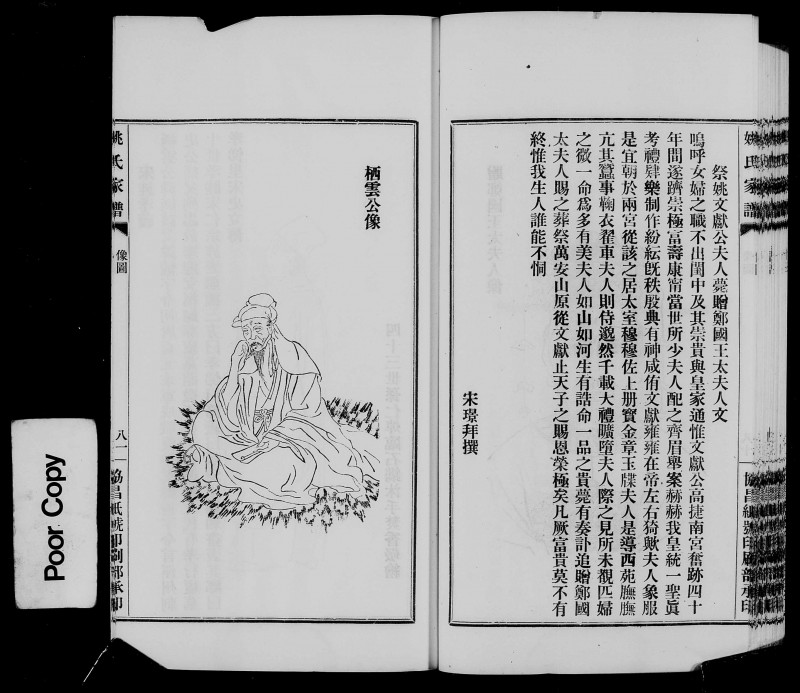 姚氏家譜
祭姚文獻公夫人薨贈鄭國王太夫人文
嗚呼女婦之職不出閨中及其崇貴與皇家通惟文獻公高捷南宮奮跡四十
年間遂躋崇極富壽康甯當世所少夫人配之齊眉舉案赫赫我皇統一聖眞
考禮肆樂制作紛紜旣秩殷典有神咸侑文獻雍雍在帝左右猗歟夫人象服
是宜朝於兩宮從該之居太室穆穆佐上册寳金章玉牒夫人是導西苑膴膴
亢其蠶事鞠衣翟車夫人則侍邈然千載大禮曠墮夫人際之見所未覩匹婦
之微一命爲多有美夫人如山如河生有誥命一品之貴薨有奏訃追贈鄭國
太夫人賜之葬祭萬安山原從文獻止天子之賜恩榮極矣凡厥富貴莫不有
終惟我生人誰能不恫
宋璟拜撰
栖雲公像
姚氏家譜
像圖
八一
協昌紙號印刷部承印
Poor Copy